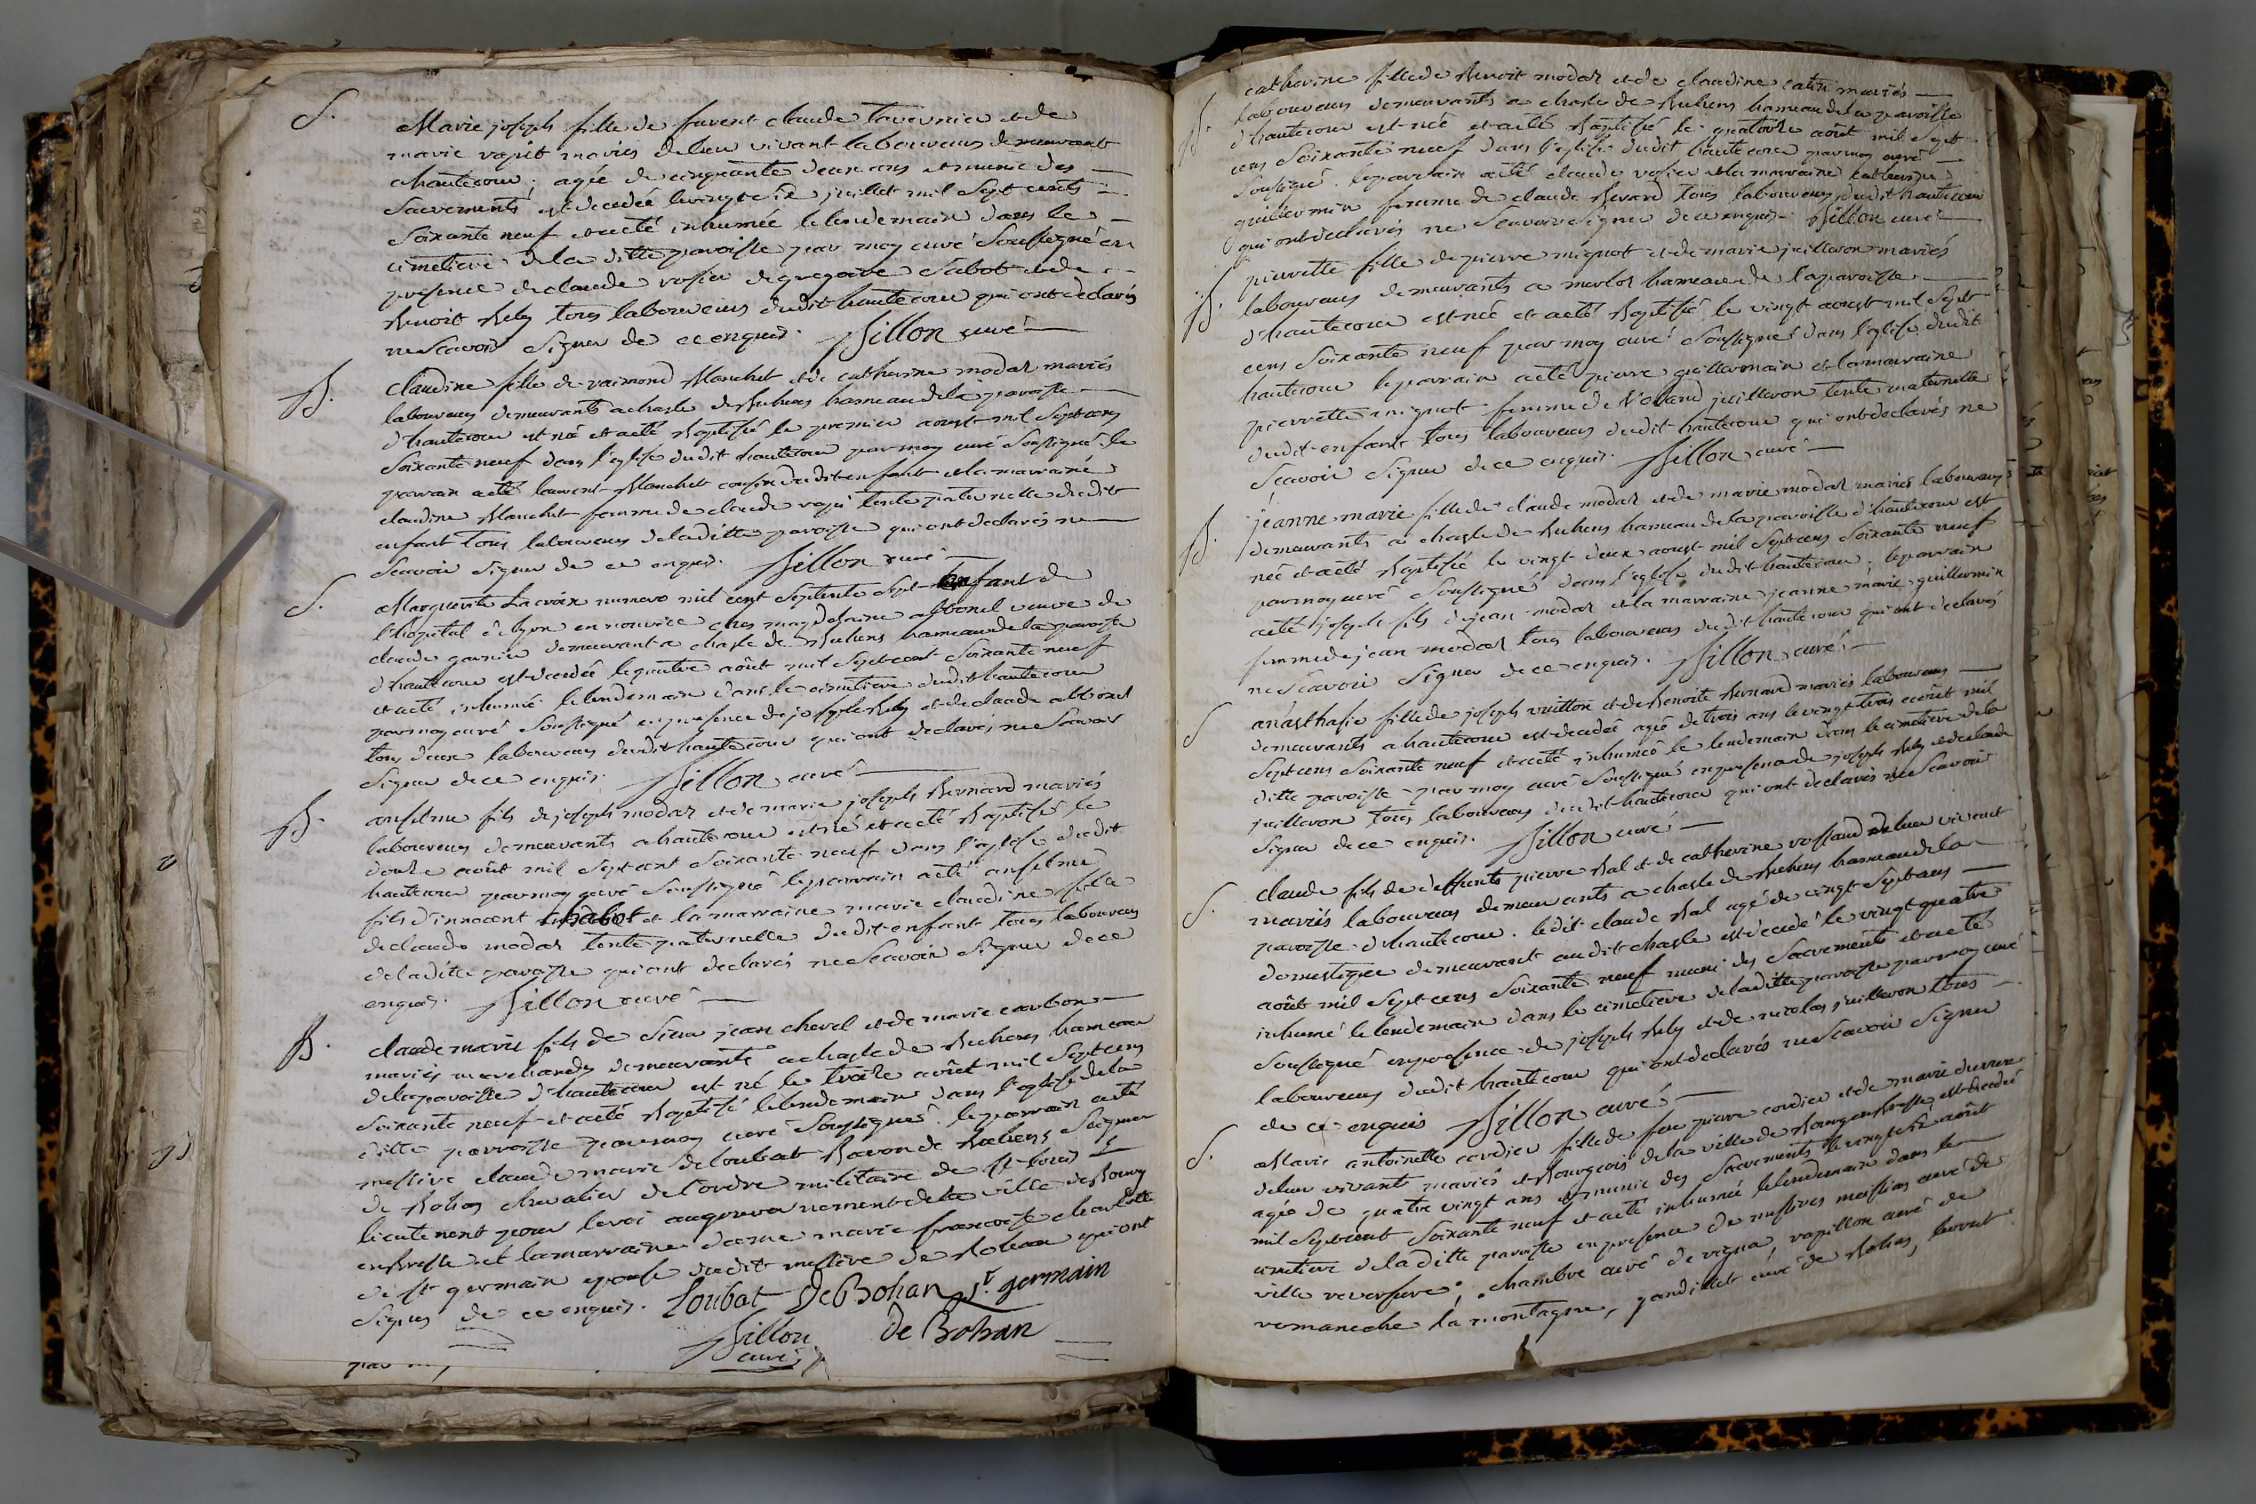 S.
Marie joseph fille de furent claude tavernier et de
marie vapit mariés deleur vivant laboureurs demeurant
hautecour, agée de cinquante deux ans et munie des
Sacrements est decedée le vingt et six juillet mil Sept cents
Soixante neuf et a eté inhumée le lendemain dans le
cimetiere de la ditte paroisse par moy curé Soussigné en
presence de claude rosier de gregoire Sabot et de
Benoit Rely tous laboureurs dudit hautecour qui ont declarés
ne Scavoir Signer de ce enquis. Billon curé
B.
claudine fille de raimond Manchet et de catherine modas mariés
laboureurs demeurants a chasle de Rubens hameau de la paroisse
d'hautecour est né et a eté Baptisé le premier aoust mil Sept cens
Soixante neuf dans l'eglise dudit hautecour par moy curé Soussigné. le
parrain a eté laurent Manchet cousin dudit enfant et la marraine
claudine Manchet femme de claude tente paternelle dudit
enfant tous laboureurs de la ditte paroisse qui ont declarés ne
Scavoir Signer de ce enquis. Billon curé
S.
Marguerite Lacroix numero mil cent Septente Sept enfant de
l'hopital de lyon en nourice ches magdelaine abbonel veuve de
claude garnier demeurant a chasle de Rubens hameau de la paroisse
d'hautecour est decedée le quatre août mil Sept cent Soixante neuf
et a eté inhumée le lendemain dans le cimetiere dudit hautecour
par moy curé Soussigné en presence de joseph Rely et de claude abbonel
tous deux laboureurs dudit hautecour qui ont declarés ne Scavoir
Signer de ce enquis. Billon curé
B.
anselme fils de joseph modas et de marie joseph Bernard mariés
laboureurs demeurants a hautecour est né et a eté Baptisé le
douze août mil Sept cent Soixante neuf dans l'eglise dudit
hautecour par moy curé Soussigné le parrain a eté anselme
fils d'innocent chabot et la marraine marie claudine fille
de claude modas tente paternelle dudit enfant tous laboureurs
de la ditte paroisse qui ont declarés ne Scavoir Signer de ce
enquis. Billon curé
B.
claude marie fils de Sieur jean chevel et de marie carbon
mariés marchands demeurants a chasle de Rubens hameau
de la paroisse d'hautecour est né le treize août mil Sept cens
Soixante neuf et a eté Baptisé le lendemain dans l'eglise de la
ditte parroisse par moy curé Soussigné. le parrain a eté
messire claude marie de loubat Baron de Rubens Seigneur
de Bohas chevalier de l'ordre militaire de St louis
lieutenent pour le roi au gouvernement de la ville de Bourg
en Bresse et la marraine dame marie francoise charlotte
de St germain epouse dudit messire de Bohan qui ont
Signés de ce enquis. Loubat De Bohan St. germain
Billon de Bohan
curé
catherine fille de Benoit modas et de claudine catin mariés
B.
laboureurs demeurants a chasle de Rubens hameau de la paroisse
d'hautecour est née et a eté Baptisé le quatorze août mil Sept
cens Soixante neuf dans l'eglise dudit hautecour par moy curé
Soussigné. le parrain a eté claude rosier et la marraine catherine
guillermin femme de claude Bevard tous laboureurs dudit hautecour
qui ont declarés ne Scavoir Signer de ce enquis. Billon curé
pierrette fille de pierre mignot et de marie juilleron mariés
B.
laboureurs demeurants a merlos hameau de la paroisse
d'hautecour est née et a eté Baptisé le vingt aoust mil Sept
cens Soixante neuf par moy curé Soussigné dans l'eglise dudit
hautecour le parrain a eté pierre guillermain et la marraine
pierrette mignot femme de juilleron tente maternelle
dudit enfant tous laboureurs dudit hautecour qui ont declarés ne
Scavoir Signer de ce enquis. Billon curé
B.
jeanne marie fille de claude modas et de marie modas mariés laboureurs
demeurants a chasle de Rubens hameau de la paroisse d'hautecour est
née et a eté Baptisé le vingt deux aoust mil Sept cens Soixante neuf
par moy curé Soussigné dans l'eglise dudit hautecour; le parrain
a eté joseph fils de jean modas et la marraine jeanne marie guillermin
femme de jean modas tous laboureurs dudit hautecour qui ont declarés
ne Scavoir Signer de ce enquis. Billon curé
S
anasthasie fille de joseph vuitton et de Benoite Bernard mariés laboureurs
demeurants a hautecour est decedée agée de trois ans le vingt trois août mil
Sept cens Soixante neuf et a eté inhumée le lendemain dans le cimetiere de la
ditte paroisse par moy curé Soussigné en presence de joseph Rely et de claude
juilleron tous laboureurs dudit hautecour qui ont declarés ne Scavoir
Signer de ce enquis. Billon curé
S.
claude fils de deffunts pierre Bal et de catherine rossand de leur vivant
mariés laboureurs demeurants a chasle de Rubens hameau de la
paroisse d'hautecour. ledit claude Bal agé de vingt Sept ans
domestique demeurant audit chasle est decedé le vingt quatre
août mil Sept cens Soixante neuf muni des Sacrements et a eté
inhumé le lendemain dans le cimetiere de la ditte paroisse par moy curé
Soussigné en presence de joseph Rely et de nicolas juilleron tous
laboureurs dudit hautecour qui ont declarés ne Scavoir Signer
de ce enquis Billon curé
S.
Marie antoinette cordier fille de feu pierre cordier et de marie
deleur vivant mariés et Bourgeois de la ville de Bourg en Bresse est decedée
agée de quatre vingt ans et munie des Sacrements le vingt et six août
mil Sept cent Soixante neuf et a eté inhumée le lendemain dans le
cimetiere de la ditte paroisse en presence de messires curé de
ville reversure; chambre curé de vigna, rapillon curé de
romaneche la montagne, gandillet curé de Bohas,